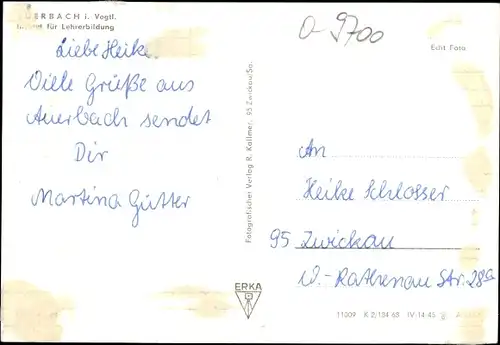 AUERBACH i. Vogtl.
Institut für Lehrerbildung
Liebe Heike.
Viele Grüße aus
Auerbach sendet
Dir
Martina Gütter
Fotografischer Verlag R. Kallmer, 95 Zwickau/Sa.
ERKA
9700
Echt Foto
An
Heike Schlosser
95 Zwickau
W.-Rathenau Str. 28a
11009 K 2/104 68 IV-14-45